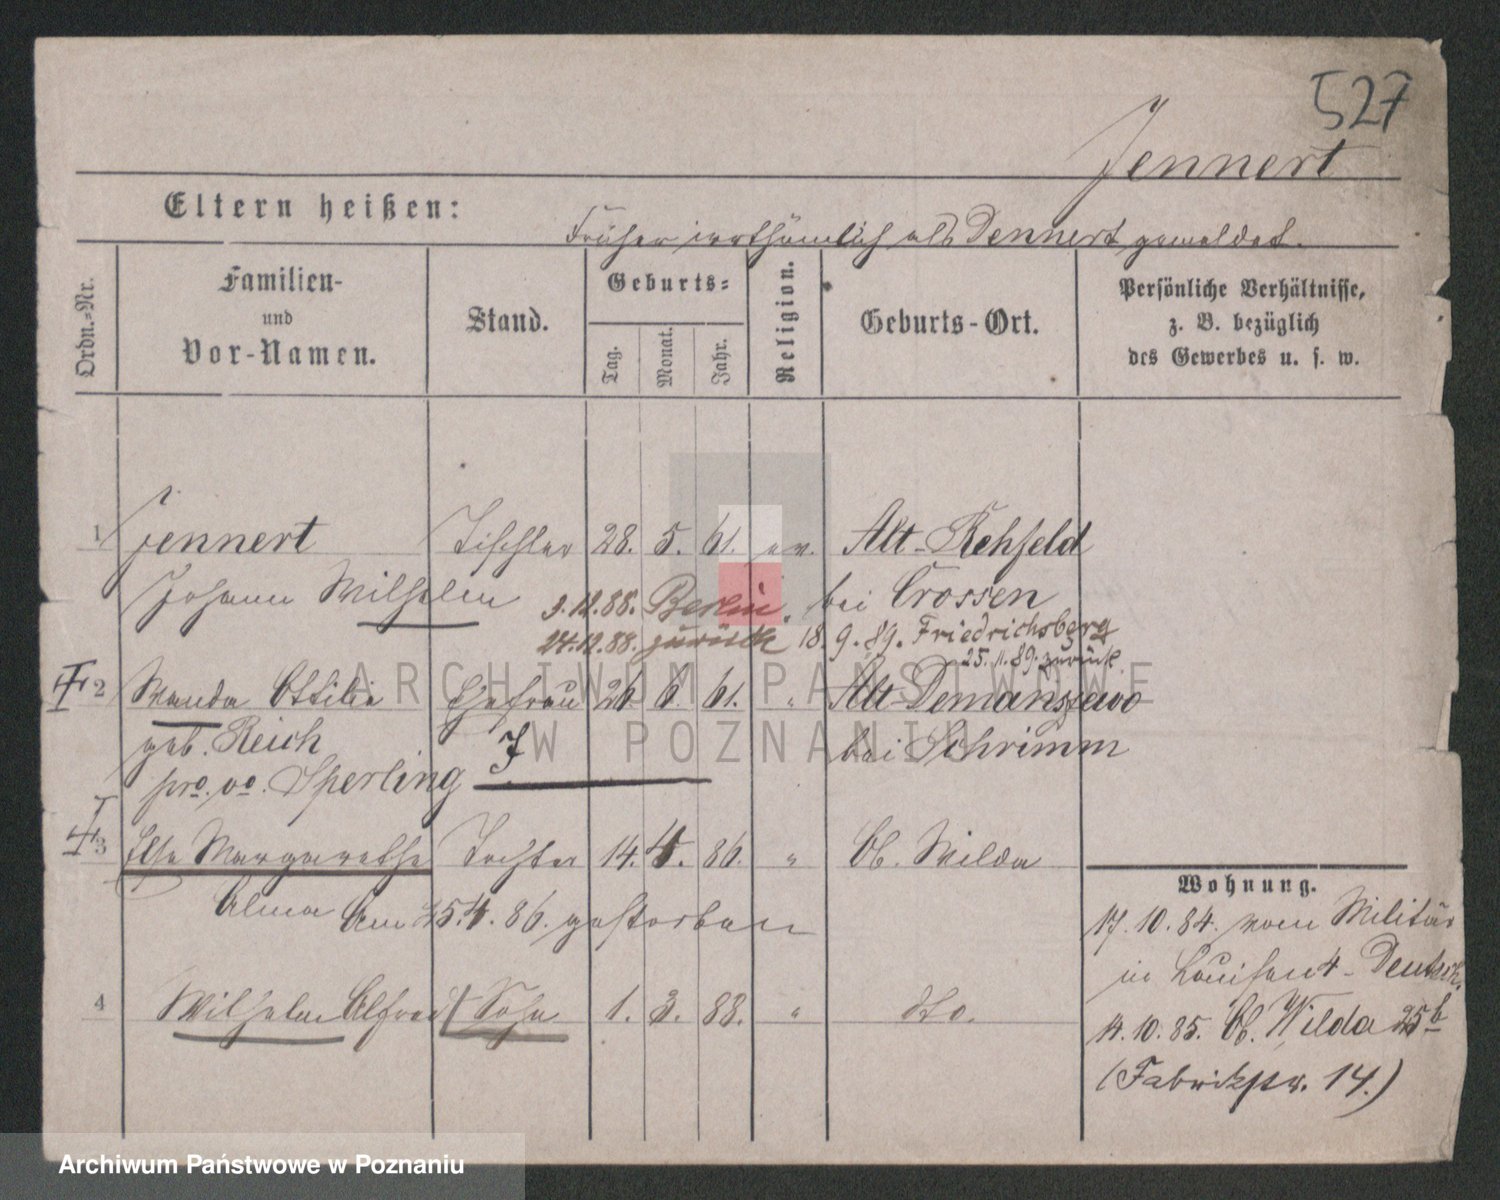 527
Jennert
Eltern heißen:
Früher irrthümlich als Dennert gemeldet.
Ordn.-Nr.
Familien-
und
Vor-Namen.
Stand.
Geburts-
Tag.
Monat.
Jahr.
Religion.
Geburts-Ort.
Persönliche Verhältnisse,
z. B. bezüglich
des Gewerbes u. s. w.
1 Jennert Tischler 28. 5. 61. ev. Alt-Rehfeld
Johann Wilhelm bei Crossen
3.12.88. Berlin.
24.12.88. zurück 18.9.89. Friedrichsberg
25.11.89. zurück.
2 Wanda Ottilie Ehefrau 26. 6. 61. " Alt-Demanszewo
geb. Reich bei Schrimm
pro. vo. Sperling
3 Else Margarethe Tochter 14. 4. 86. " Ob. Wilda
Alma Am 25.4.86. gestorben
4 Wilhelm Alfred Sohn 1. 3. 88. " dto.
Wohnung.
17.10.84. vom Militär
in Louisen 4 - Deutsch.
14.10.85. Ob. Wilda 25b
(Fabrikstr. 14.)
ARCHIWUM PAŃSTWOWE
W POZNANIU
Archiwum Państwowe w Poznaniu